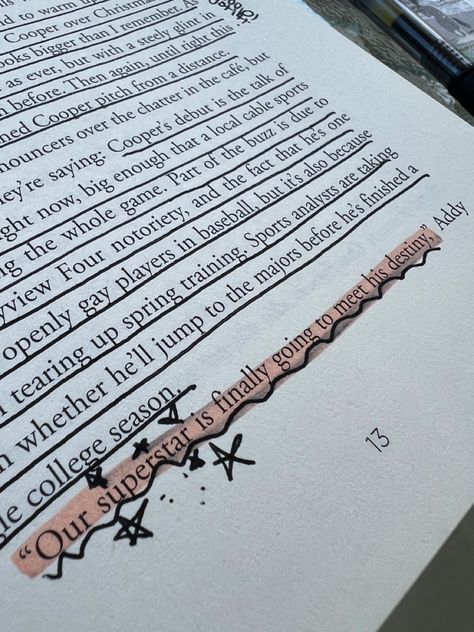 d to warm up
Cooper over Christmas
ooks bigger than I remember. As
as ever, but with a steely glint in
before. Then again, until right this
ned Cooper pitch from a distance.
nouncers over the charter in the café, but
ey're saying: Cooper's debut is the talk of
ght now, big enough that a local cable sports
ng the whole game. Part of the buzz is due to
yview Four notoriety, and the fact that he's one
openly gay players in baseball, but it's also because
tearing up spring training. Sports analysts are taking
n whether he'll jump to the majors before he's finished a
gle college season.
“Our superstar is finally going to meet his destiny,” Addy
13